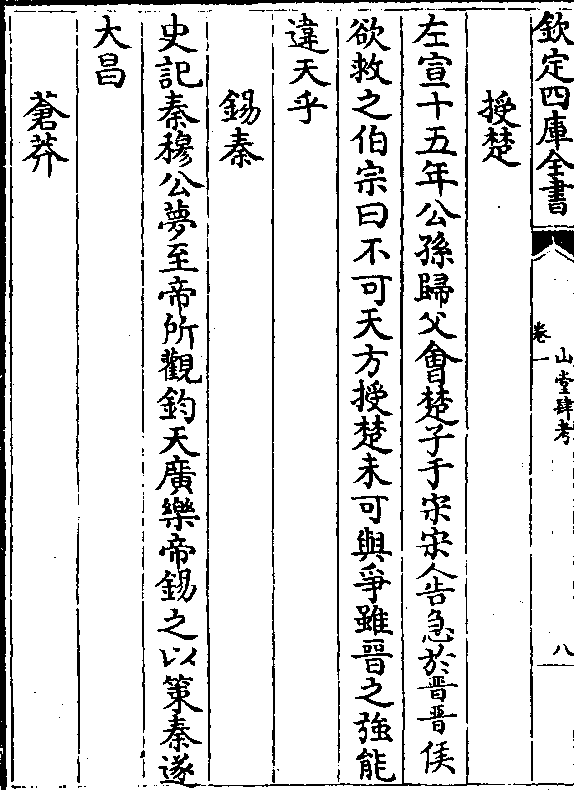 欽定四庫全書
山堂肆考
卷一
八
授楚
左宣十五年公孫歸父會楚子于宋宋人告急於晉晉侯
欲救之伯宗曰不可天方授楚未可與爭雖晉之強能
違天乎
錫秦
史記秦穆公夢至帝所觀鈞天廣樂帝錫之以策秦遂
大昌
蒼莽